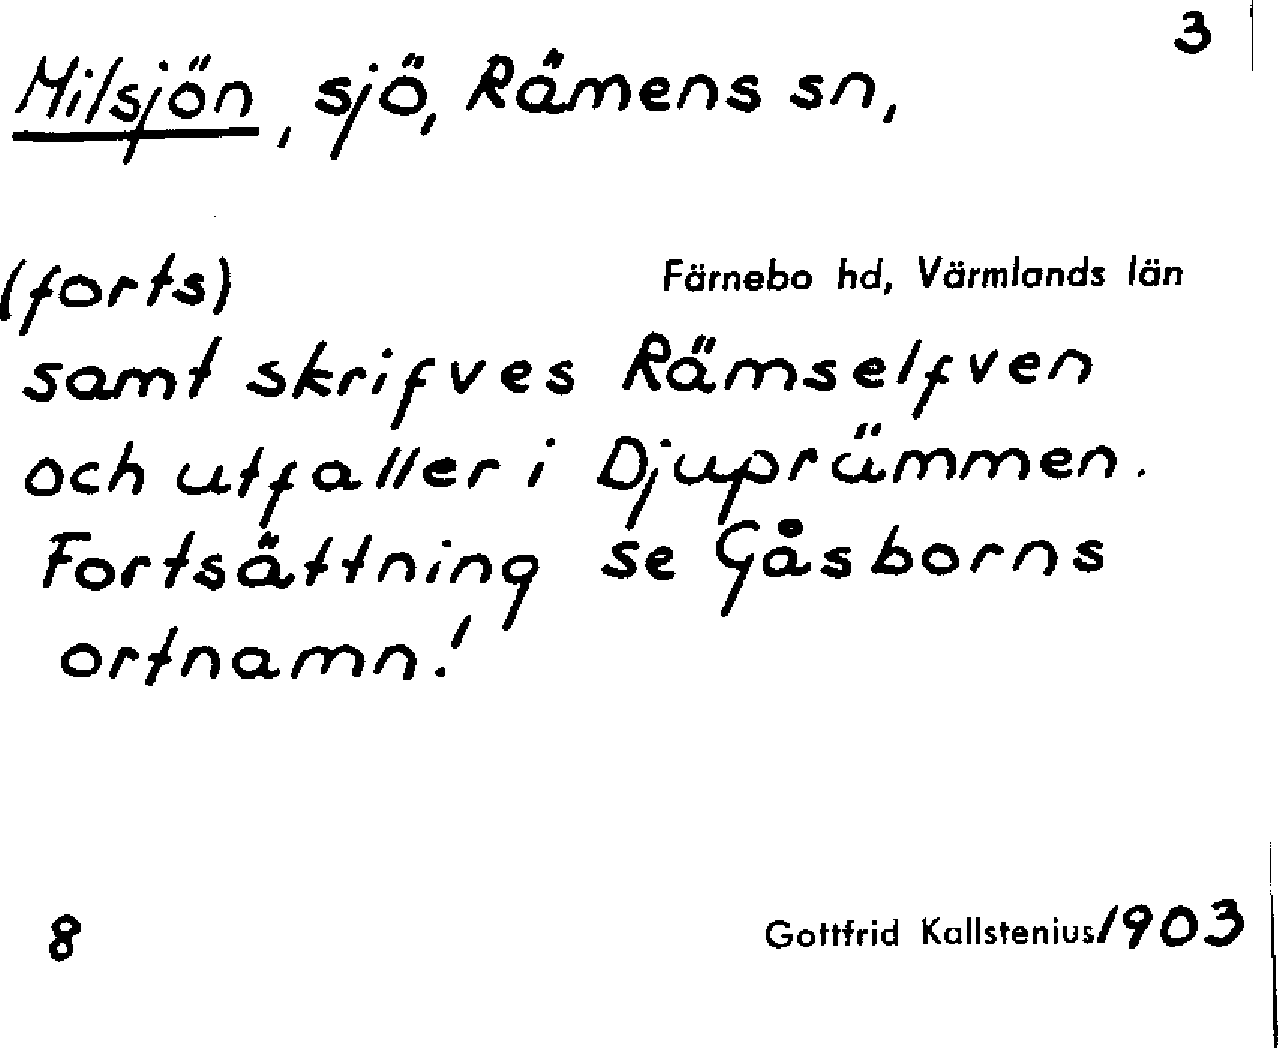 3
Milsjön, sjö, Rämens sn,
(forts) Färnebo hd, Värmlands län
samt skrifves Rämselfven
och utfaller i Djuprämmen.
Fortsättning se Gåsborns
ortnamn!
8 Gottfrid Kallstenius/1903